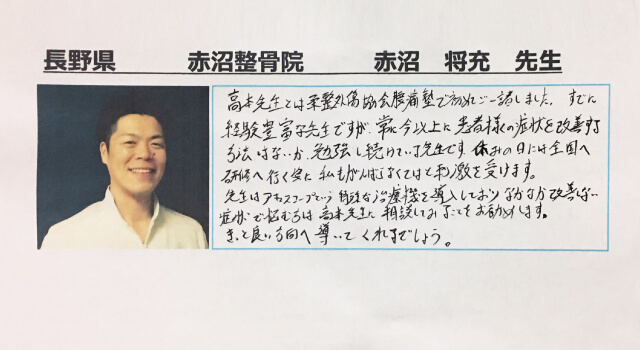 長野県 赤沼整骨院 赤沼 将充 先生
高本先生とは柔整外傷協会腰痛塾で初めてご一緒しました。すでに
経験豊富な先生ですが、常に今以上に患者様の症状を改善する
方法はないか、勉強し続けている先生です。休みの日には全国へ
研修へ行く姿に私もがんばらなくてはと刺激を受けます。
先生はアキュスコープという特殊な治療機を導入しており、なかなか改善しない
症状で悩む方は高本先生に相談してみることをお勧めします。
きっと良い方向へ導いてくれるでしょう。